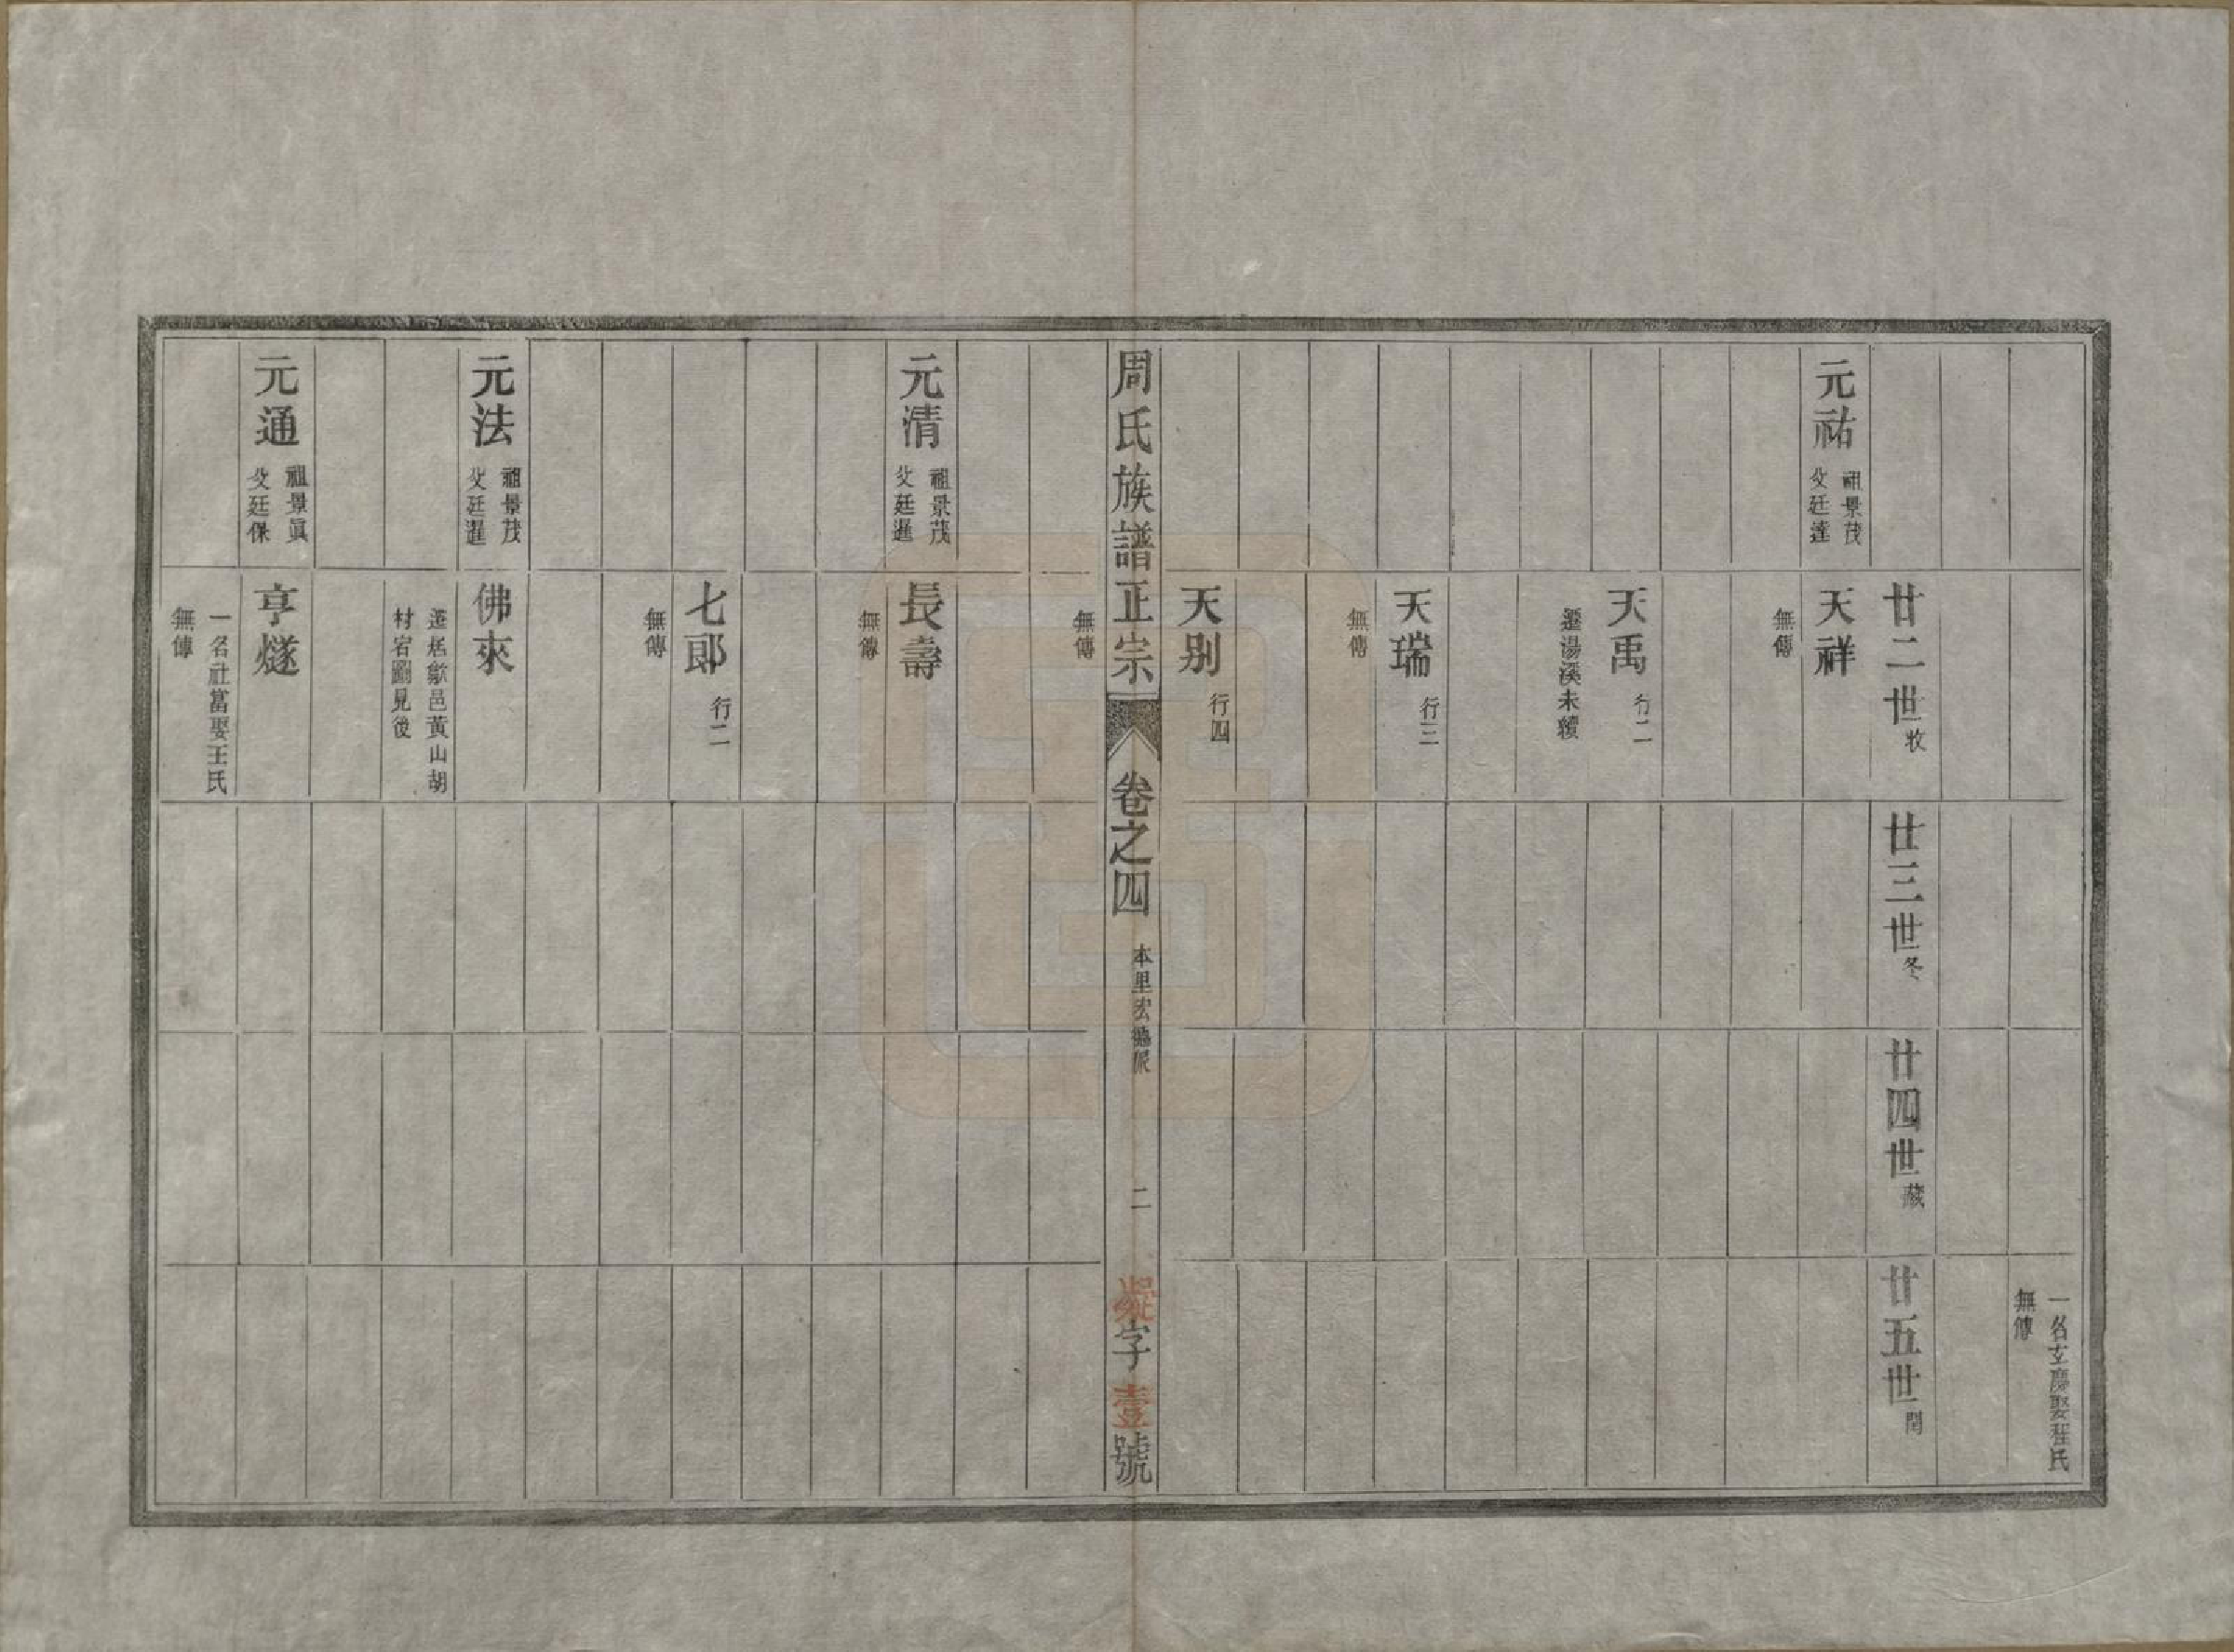 一名玄慶娶程氏
無傳
廿二世收
廿三世冬
廿四世藏
廿五世閏
元祐
祖景茂
父廷達
天祥
無傳
天禹
行二
遷湯溪未續
天瑞
行三
無傳
天别
行四
無傳
周氏族譜正宗
卷之四
本里宏德派
二
字壹號
元清
祖景茂
父廷暹
長壽
無傳
七郎
行二
無傳
元法
祖景茂
父廷暹
佛來
遷居歙邑黃山胡
村宕圖見後
元通
祖景眞
父廷保
亨燧
一名社富娶王氏
無傳